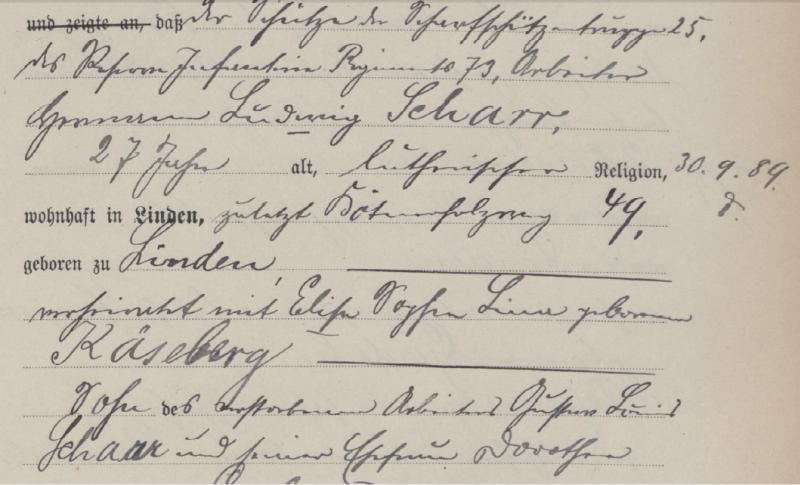 und zeigte an, daß der Schütze der Scharfschützentruppe 25,
des Reserve Infanterie Regiments 73, Arbeiter
Hermann Ludwig Scharr,
27 Jahre alt, lutherischer Religion, 30. 9. 89.
wohnhaft in Linden, zuletzt 49,
geboren zu Linden,
verheiratet mit Elise Sophie Line geborenen
Käseberg
Sohn des verstorbenen Arbeiters Gustav Louis
Schaar und seiner Ehefrau Dorothee